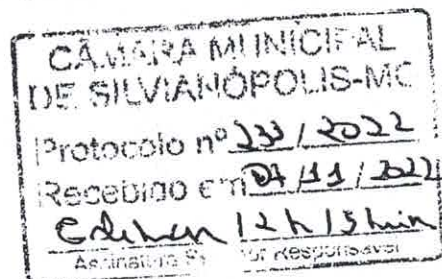 CÂMARA MUNICIPAL
DE SILVIANÓPOLIS-MG
Protocolo nº 233 / 2022
Recebido em 07 / 11 / 2022
12h15min
Assinatura Servidor Responsável